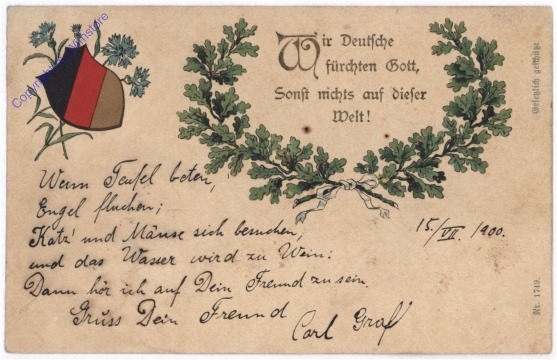 Wir Deutsche
fürchten Gott,
Sonst nichts auf dieser
Welt!
Gesetzlich geschützt.
Wenn Teufel beten,
Engel fluchen;
Katz' und Mäuse sich besuchen,
und das Wasser wird zu Wein:
Dann hör ich auf Dein Freund zu sein.
Gruss Dein Freund
Carl Graf
15./VII. 1900.
Nr. 1749.